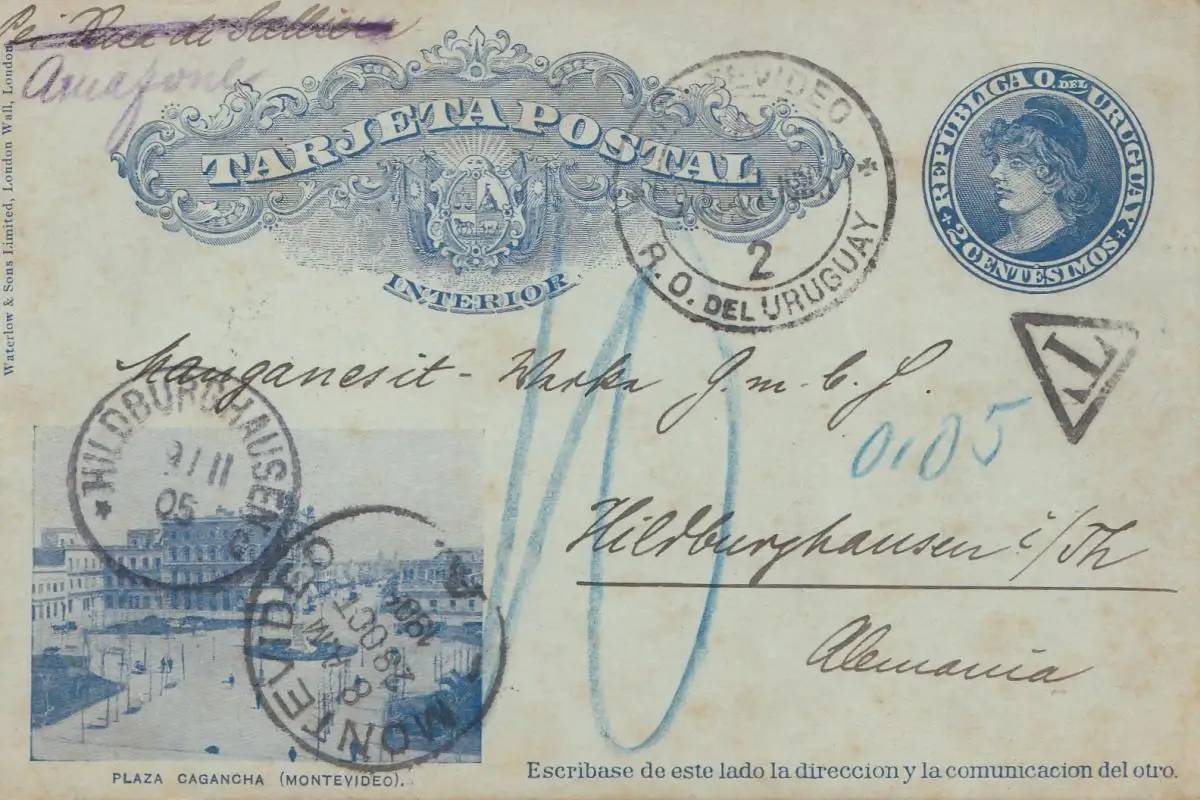 Waterlow & Sons Limited, London Wall, London.
Amazone
TARJETA POSTAL
INTERIOR
MONTEVIDEO
2
R. O. DEL URUGUAY
REPUBLICA O. DEL URUGUAY
2 CENTESIMOS
T
10
0,05
Manganesit-Werke G.m.b.H.
Hildburghausen i/Th
Alemania
HILDBURGHAUSEN
9/11
05
MONTEVIDEO
8
OCT
PLAZA CAGANCHA (MONTEVIDEO).
Escribase de este lado la direccion y la comunicacion del otro.